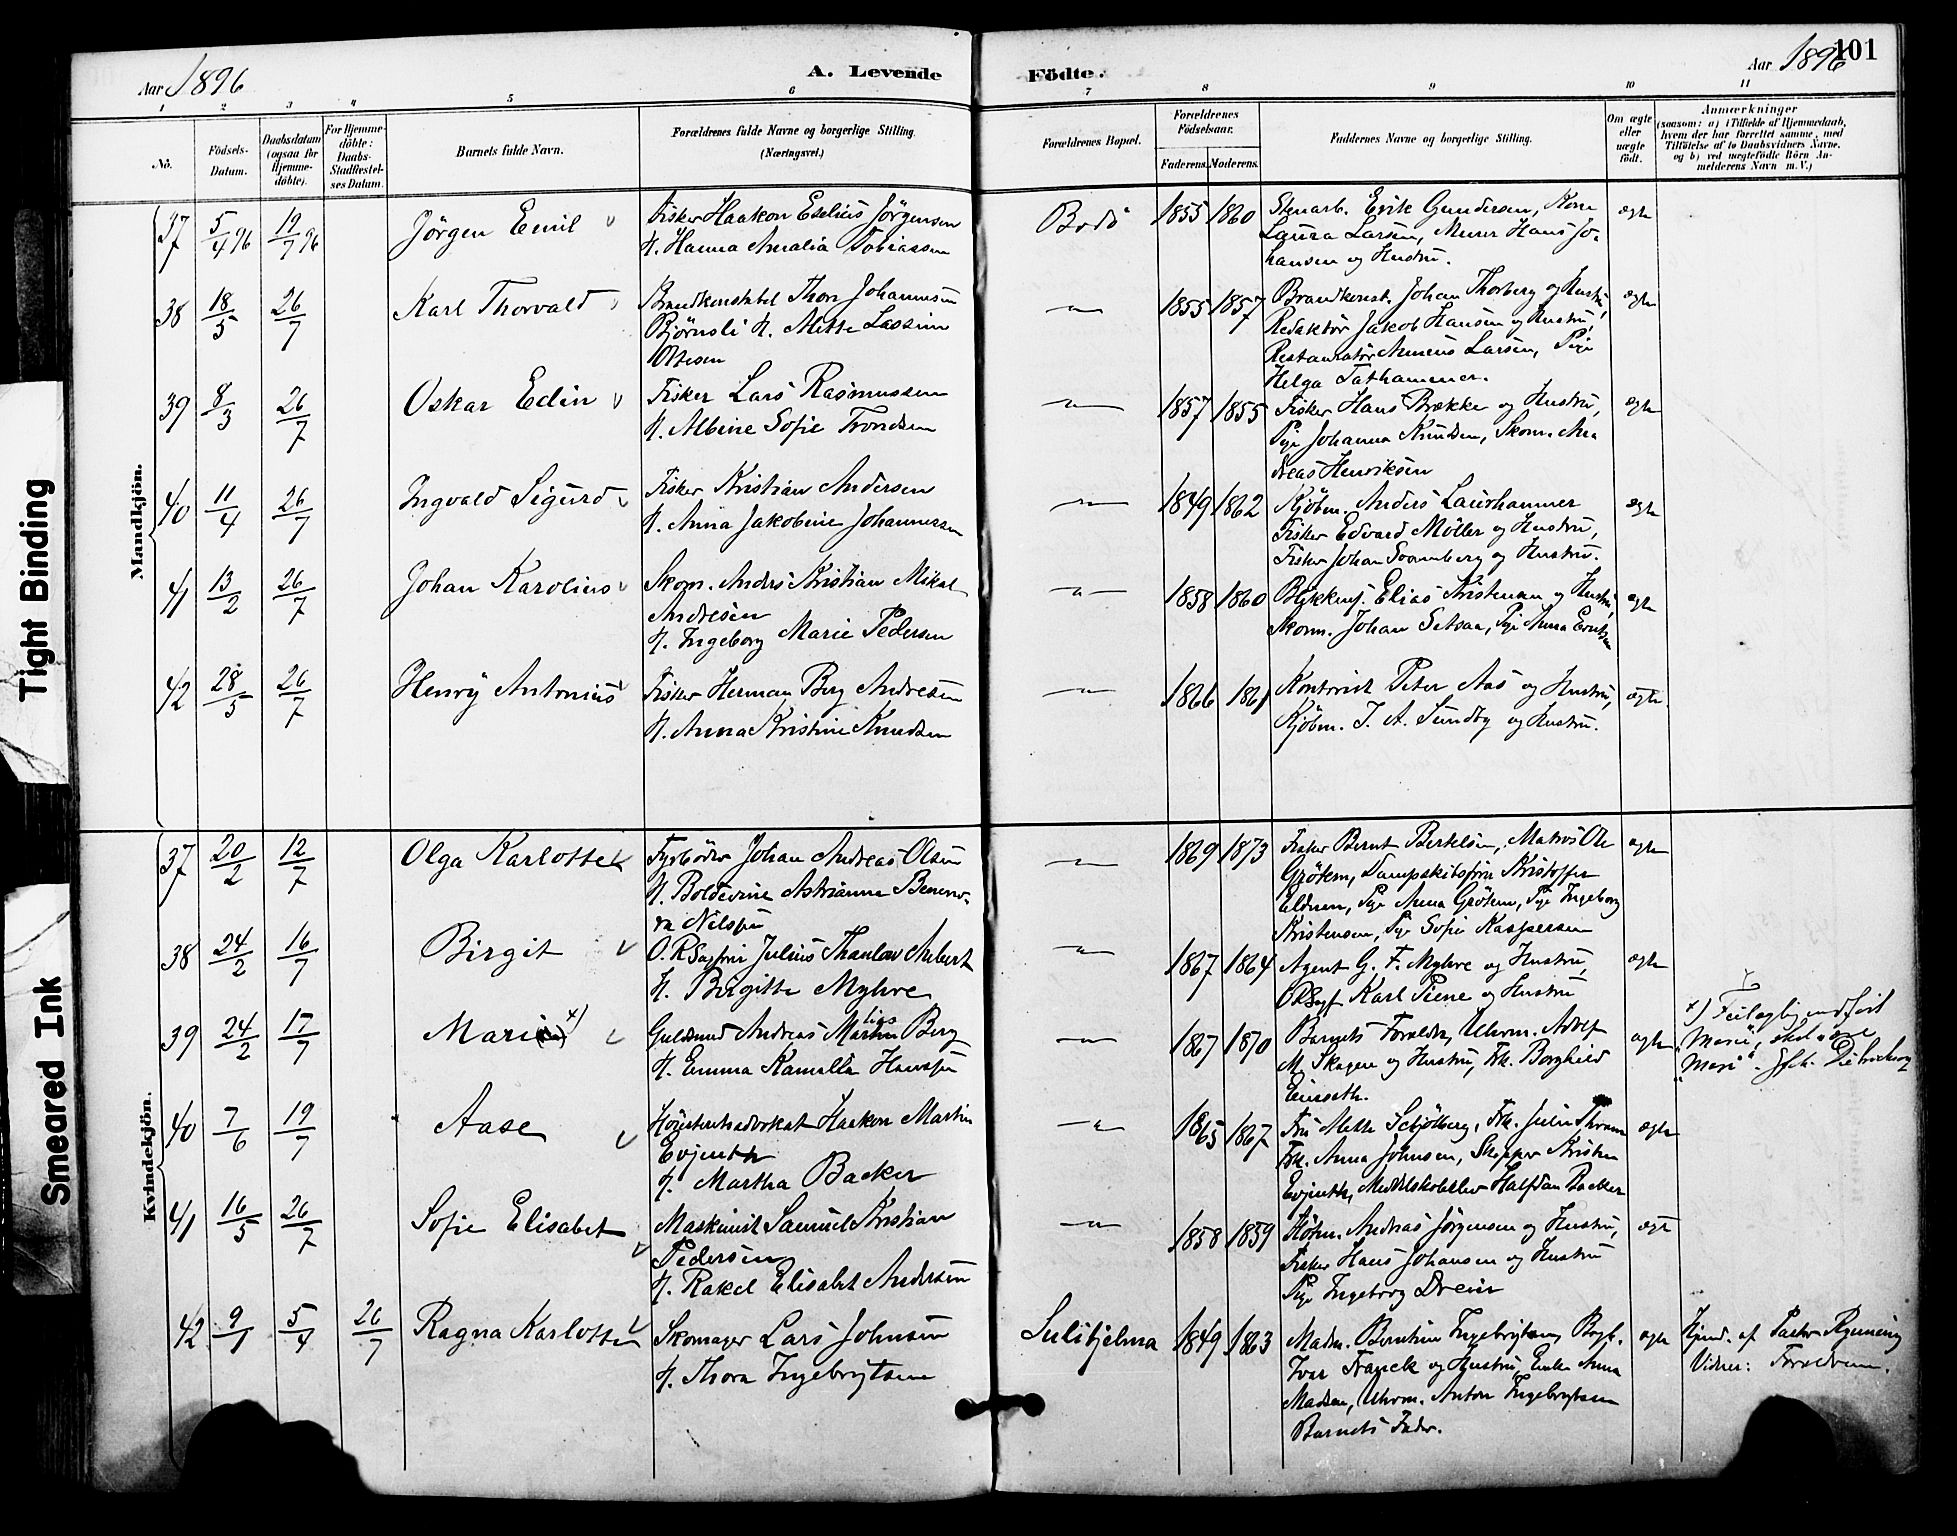 Aar 1896
A. Levende
Födte.
Aar 1896
101
1 2 3 4 5 6 7 8 9 10 11
No.
Födsels-
Datum.
Daabsdatum
(ogsaa for
Hjemme-
döbte).
For Hjemme-
döbte:
Daabs-
Stadfæstel-
ses Datum.
Barnets fulde Navn.
Forældrenes fulde Navne og borgerlige Stilling.
(Næringsvei.)
Forældrenes Bopæl.
Forældrenes
Födselsaar.
Faderens. Moderens.
Faddernes Navne og borgerlige Stilling.
Om ægte
eller
uægte
födt.
Anmærkninger
(saasom: a) i Tilfælde af Hjemmedaab,
hvem der har forrettet samme, med
Tilföielse af to Daabsvidners Navne,
og b) ved uægtefödte Börn An-
melderens Navn m. V.)
Tight Binding
Smeared Ink
Mandkjön.
37 5/4 96 19/7 96 Jörgen Emil
Fisker Haakon Eselius Jörgensen
H. Hanna Amalia Tobiassen
Bodö 1855 1860
Stenarb. Erik Gundersen, Kone
Laura Larsen, Murer Hans Jo-
hansen og Hustru.
ægte
38 18/5 26/7 Karl Thorvald
Brandkonstabel Thor Johannesen
Björnsli H. Mette Lassine
Ottesen
—"— 1855 1857
Brandkonst. Johan Thorberg og Hustru,
Redaktör Jakob Hansen og Hustru,
Restauratör Larsen, Pige
Helga
ægte
39 8/3 26/7 Oskar Edin
Fisker Lars Rasmussen
H. Albine Sofie Trondsen
—"— 1857 1855
Fisker Hans Brække og Hustru,
Pige Johanna Knudsen, Skom. An-
dreas Henriksen
ægte
40 11/4 26/7 Ingvald Sigurd
Fisker Kristian Andersen
H. Anna Jakobine Johannessen
—"— 1849 1862
Kjöbm. Anders Laurhammer
Fisker Edvard Möller og Hustru,
Fisker Johan Svamberg og Hustru.
ægte
41 13/2 26/7 Johan Karolius
Skom. Anders Kristian Mikal
Andresen
H. Ingeborg Marie Pedersen
—"— 1858 1860
Blikkensl. Elias Kristensen og Hustru,
Skom. Johan Setsaa, Pige Anna
ægte
42 28/5 26/7 Henry Antonius
Fisker Herman Berg Andresen
H. Anna Kristine Knudsen
—"— 1866 1861
Kontorist Peter Aas og Hustru,
Kjöbm. J. A. Sundby og Hustru.
ægte
Kvindekjön.
37 20/2 12/7 Olga Karlotte
Fyrböder Johan Andreas Olsen
H. Boldevine Astrianna
Nilssen
—"— 1869 1873
Fisker Bernt Bertelsen, Matros Ole
Grötem, Kristoffer
Eldnen, Pige Anna Grötem, Pige Ingeborg
Kristensen, Pige Sofie Kaspersen
ægte
38 24/2 16/7 Birgit
O.R.Sagfrer Julius Thaulow Aubert
H. Birgitte Myhre
—"— 1867 1864
Agent G. F. Myhre og Hustru,
ORSagf Karl Piene og Hustru
ægte
39 24/2 17/7 Marie x)
Guldsmed Andreas Martinius Berg
H. Emma Kamilla Hanssen
—"— 1867 1870
Barnets Forældre, Uhrm. Adolf
M. Skagen og Hustru, Frk. Borghild
Einseth.
ægte
x) Feilagtig indfört
"Marie", skal være
"Mari".
40 7/6 19/7 Aase
Höiesteretsadvokat Haakon Martin
Evjenth
H. Martha Backer
—"— 1865 1867
Fru Mette Schjölberg, Frk. Julie
Frk. Anna Johnsen, Skipper Kristen
Evjenth, Middelskoleelev Halfdan Backer
ægte
41 16/5 26/7 Sofie Elisabet
Maskinist Samuel Kristian
Pedersen
H. Rakel Elisabet Andersen
—"— 1858 1859
Andreas Jörgensen og Hustru,
Fisker Hans Johansen og Hustru
Pige Ingeborg Dreier
ægte
42 9/1 5/4 26/7 Ragna Karlotte
Skomager Lars Johnsen
H. Thora Ingebrigtsen
Sulitjelma 1849 1863
Madm. Berntine Ingebrigtsen,
Ivar Franck og Hustru, Enke Anna
Madsen, Uhrm. Anton Ingebrigtsen
Barnets Fader.
ægte
Hjmd. af Pastor
Vidner: Forældrene.